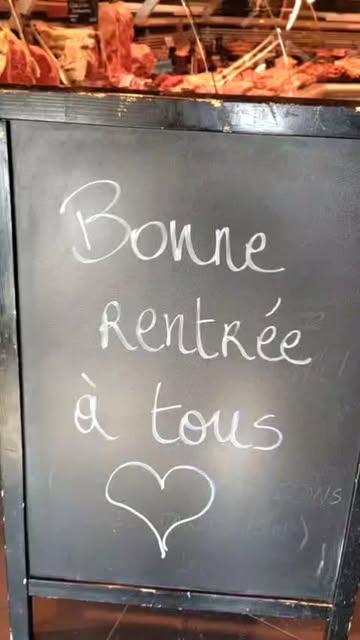 Bonne
rentrée
à tous